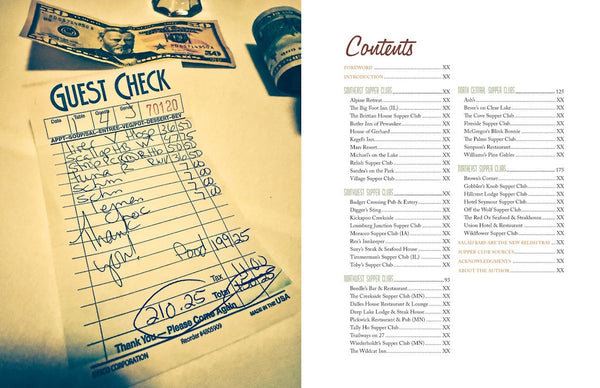 50
GUEST CHECK
Date
Table
Guests
Server
70120
APPT-SOUP/SAL-ENTREE-VEG/POT-DESSERT-BEV
Tuna
Schn
Schn
7.00
Thank
you
Food 199.25
Tax
210.25
Total
Thank You — Please Come Again
MADE IN THE USA
Contents
FOREWORD XX
INTRODUCTION XX
SOUTHEAST SUPPER CLUBS
Alpine Retreat XX
The Big Foot Inn (IL) XX
The Brittian House Supper Club XX
Butler Inn of Pewaukee XX
House of Gerhard XX
Kegel's Inn XX
Mars Resort XX
Michael's on the Lake XX
Relish Supper Club XX
Sandra's on the Park XX
Village Supper Club XX
SOUTHWEST SUPPER CLUBS
Badger Crossing Pub & Eatery XX
Digger's Sting XX
Kickapoo Creekside XX
Loumburg Junction Supper Club XX
Moracco Supper Club (IA) XX
Rex's Innkeeper XX
Suzy's Steak & Seafood House XX
Timmerman's Supper Club (IL) XX
Toby's Supper Club XX
NORTHWEST SUPPER CLUBS 95
Beedle's Bar & Restaurant XX
The Creekside Supper Club (MN) XX
Dalles House Restaurant & Lounge XX
Deep Lake Lodge & Steak House XX
Pickwick Restaurant & Pub (MN) XX
Tally Ho Supper Club XX
Trailways on 27 XX
Wiederholdt's Supper Club (MN) XX
The Wildcat Inn XX
NORTH CENTRAL SUPPER CLUBS 125
Ash's XX
Besse's on Clear Lake XX
The Cove Supper Club XX
Fireside Supper Club XX
McGregor's Blink Bonnie XX
The Palms Supper Club XX
Simpson's Restaurant XX
Williams's Pine Gables XX
NORTHEAST SUPPER CLUBS 175
Brown's Corner XX
Gobbler's Knob Supper Club XX
Hillcrest Lodge Supper Club XX
Hotel Seymour Supper Club XX
Off the Wolf Supper Club XX
The Red Ox Seafood & Steakhouse XX
Union Hotel & Restaurant XX
Wildflower Supper Club XX
SALAD BARS ARE THE NEW RELISH TRAY XX
SUPPER CLUB SOURCES XX
ACKNOWLEDGMENTS XX
ABOUT THE AUTHOR XX